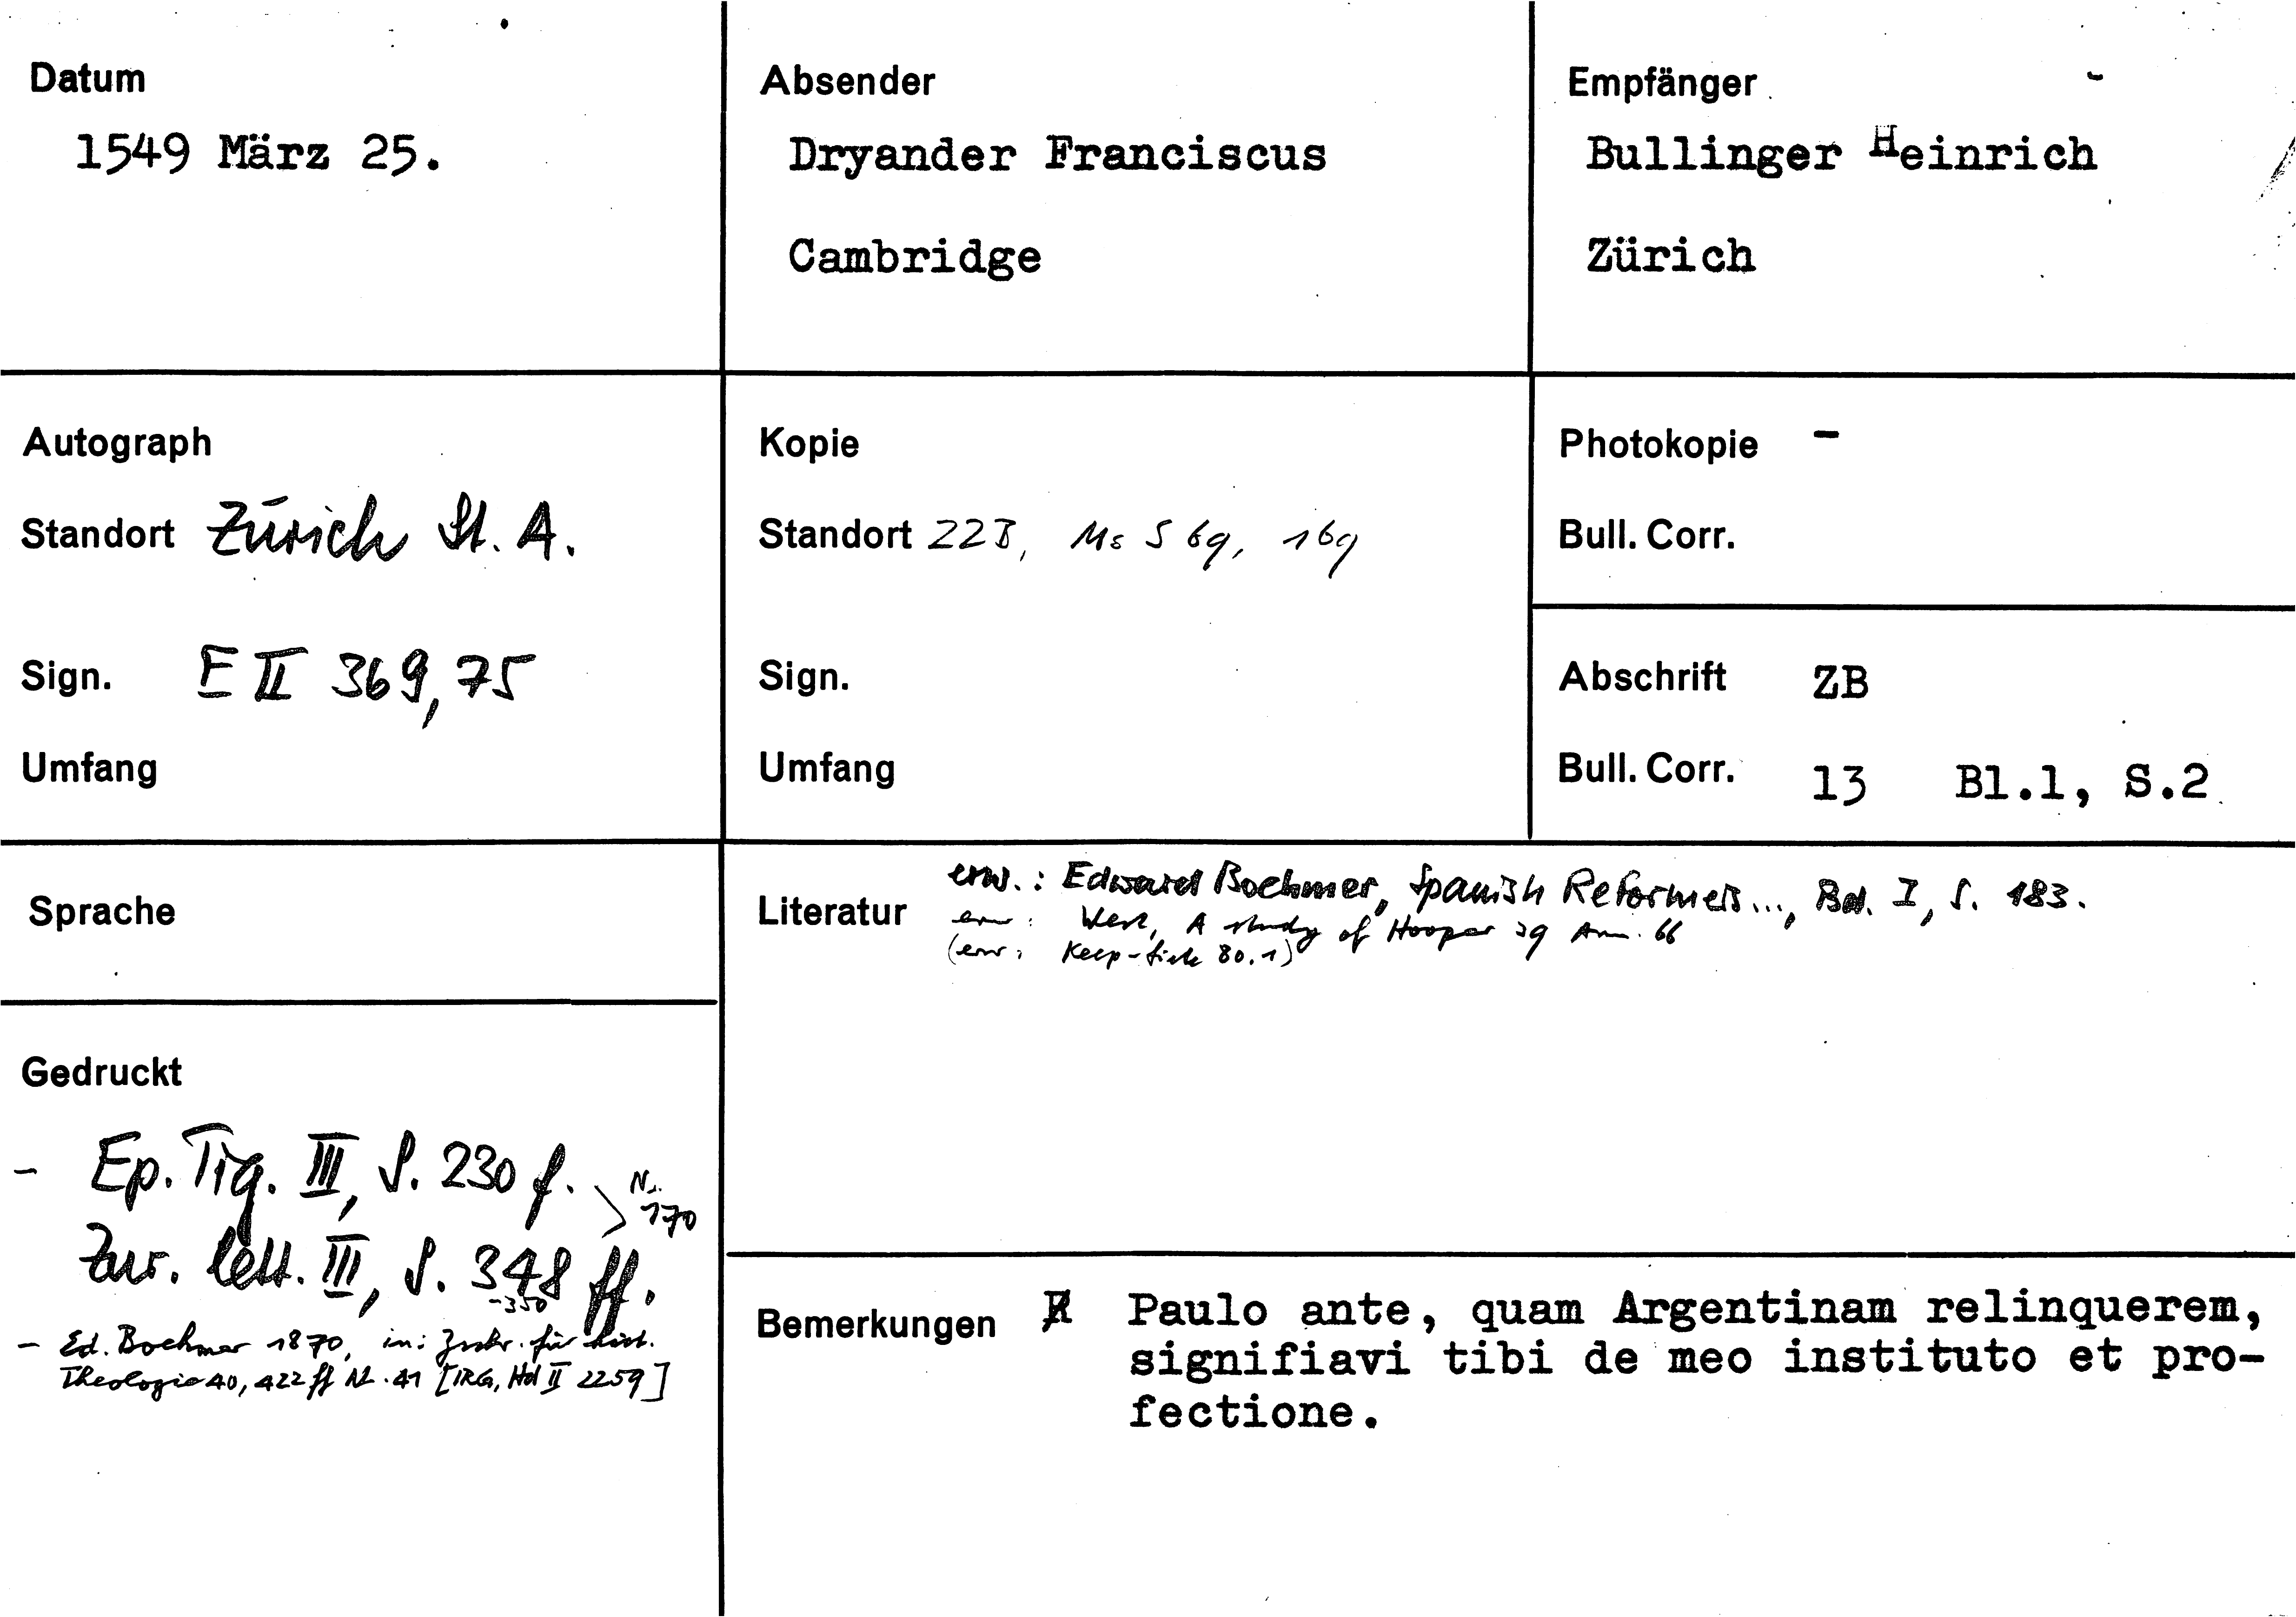 Datum
1549 März 25.
Absender
Dryander Franciscus
Cambridge
Empfänger
Bullinger Heinrich
Zürich
Autograph
Standort Zürich St. A.
Sign. E II 369,75
Umfang
Kopie
Standort ZZB, Ms S 69, 169
Sign.
Umfang
Photokopie -
Bull. Corr.
Abschrift ZB
Bull. Corr. 13 Bl.1, S.2
Sprache
Literatur erw.: Edward Boehmer, Spanish Reformers..., Bd. I, S. 183.
erw: West, A study of Hooper 29 Anm. 66
(erw: Keep 80.1)
Gedruckt
- Ep. Tig. III, S. 230 f. Nr. 170
Zur. lett. III, S. 348 ff.
-350
- Ed. Boehmer 1870, in: Zschr. für hist.
Theologie 40, 422 ff Nr. 41 [IRG, Hd II 2259]
Bemerkungen Paulo ante, quam Argentinam relinquerem,
signifiavi tibi de meo instituto et pro-
fectione.